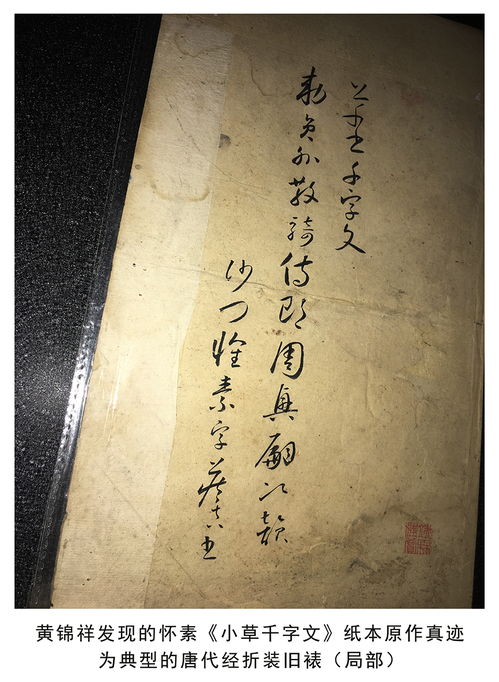 千字文
敕員外散騎侍郎周興嗣次韻
沙門懷素字藏真書
黄锦祥发现的怀素《小草千字文》纸本原作真迹
为典型的唐代经折装旧裱（局部）